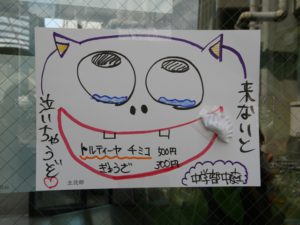 来ないと
泣いちゃうぞ
トルティーヤ チミコ 500円
ぎょうざ 300円
中学部中庭